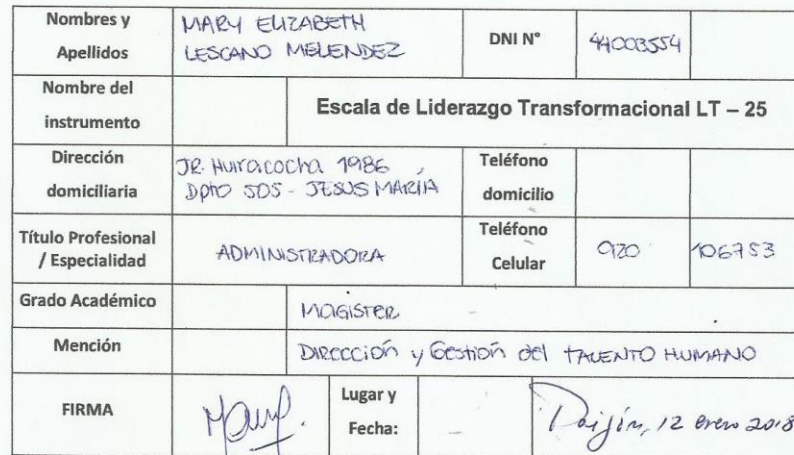 Nombres y Apellidos
MARY ELIZABETH
LESCANO MELENDEZ
DNI N°
44003554
Nombre del instrumento
Escala de Liderazgo Transformacional LT – 25
Dirección domiciliaria
JR. Huiracocha 1986 ,
Dpto 505 - JESUS MARIA
Teléfono domicilio
Título Profesional / Especialidad
ADMINISTRADORA
Teléfono Celular
920 106753
Grado Académico
MAGISTER
Mención
DIRECCIÓN y Gestión del TALENTO HUMANO
FIRMA
Lugar y Fecha:
12 enero 2018